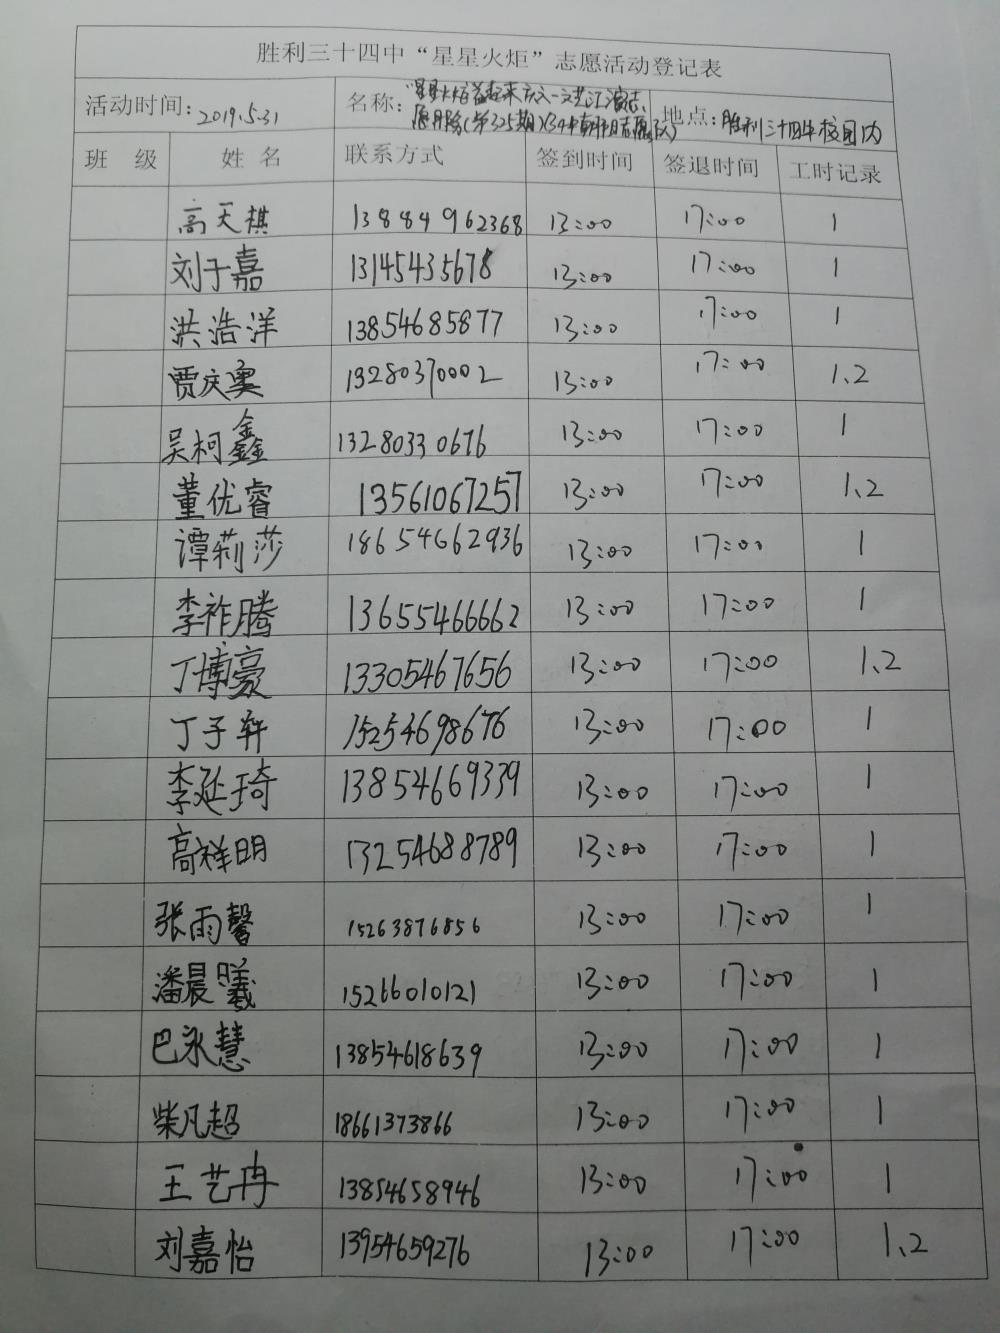 胜利三十四中“星星火炬”志愿活动登记表
活动时间：2019.5.31 名称： 地点：胜利三十四中校园内
服务（第325期）
班 级 姓 名 联系方式 签到时间 签退时间 工时记录
高天祺 13884962368 13:00 17:00 1
刘于嘉 13145435678 13:00 17:00 1
洪浩洋 13854685877 13:00 17:00 1
贾庆奥 13280370002 13:00 17:00 1、2
吴柯鑫 13280330676 13:00 17:00 1
董优睿 13561067257 13:00 17:00 1、2
谭莉莎 18654662936 13:00 17:00 1
李祚腾 13655466662 13:00 17:00 1
丁博豪 13305467656 13:00 17:00 1、2
丁子轩 15254698676 13:00 17:00 1
李延琦 13854669339 13:00 17:00 1
高祥明 13254688789 13:00 17:00 1
张雨馨 15263876856 13:00 17:00 1
潘晨曦 15266010121 13:00 17:00 1
巴永慧 13854618639 13:00 17:00 1
柴凡超 18661373866 13:00 17:00 1
王艺冉 13854658946 13:00 17:00 1
刘嘉怡 13954659276 13:00 17:00 1、2